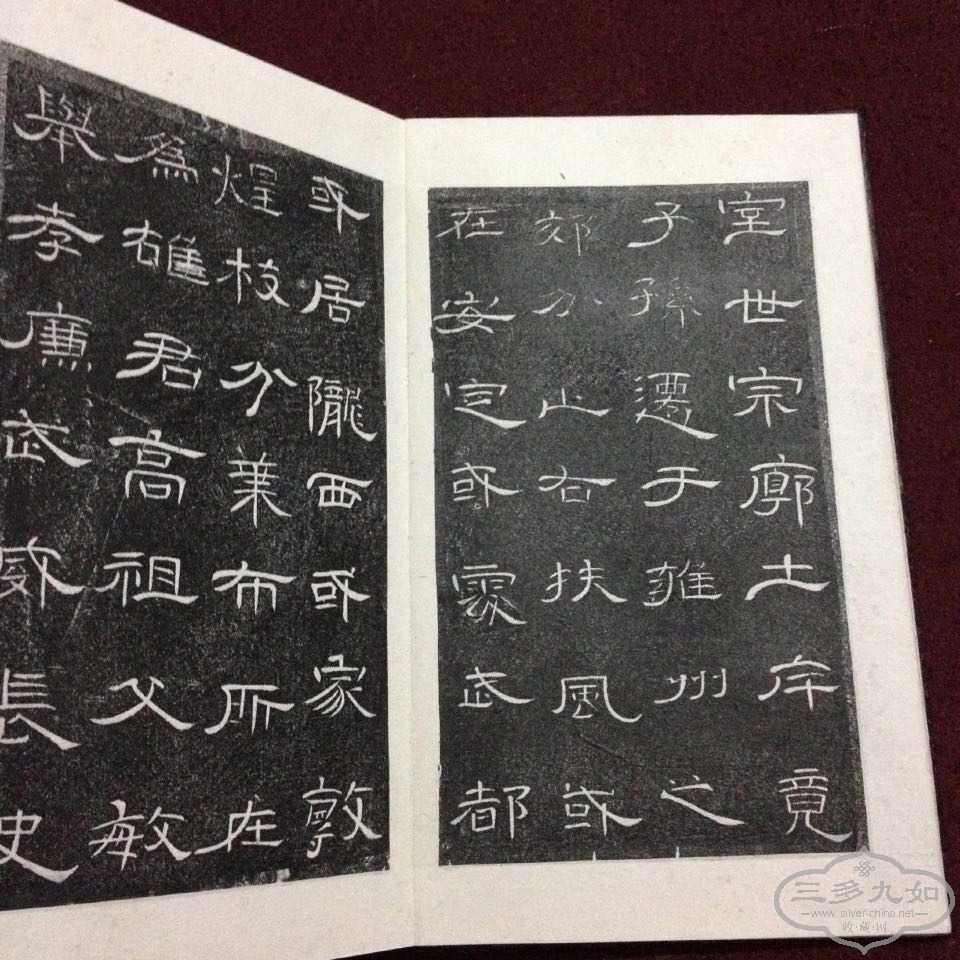 室世宗廓土斥竟
子孫遷于雍州之
郊分止右扶風或
在安定或處武都
或居隴西或家敦
煌枝分葉布所在
為雄君高祖父敏
舉孝廉武威長史
三多九如
www.silver-china.net
收·藏·网